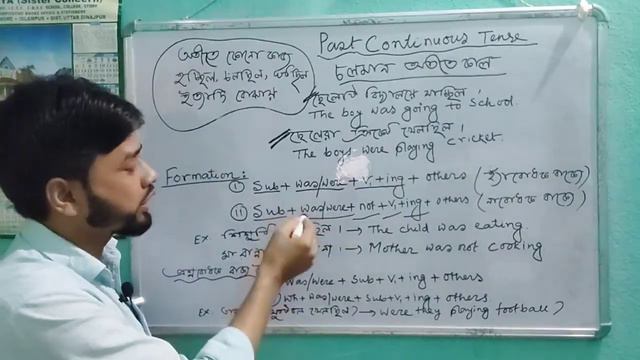 Past Continuous Tense
চলমান অতীত কাল
অতীতে কোনো কাজ
হচ্ছিল, চলছিল,
ইত্যাদি বোঝায়
ছেলেটি বিদ্যালয়ে যাচ্ছিল।
The boy was going to school.
ছেলেরা ক্রিকেট খেলছিল।
The boys were playing cricket.
Formation:
(i) Sub + was/were + V₁ + ing + others (হ্যাঁবোধক বাক্যে)
(ii) Sub + was/were + not + V₁ + ing + others (নাবোধক বাক্যে)
Ex. → The child was eating
→ Mother was not cooking
was/were + Sub + V₁ + ing + others
wh + was/were + Sub + V₁ + ing + others
Ex. খেলছিল) → were they playing football?